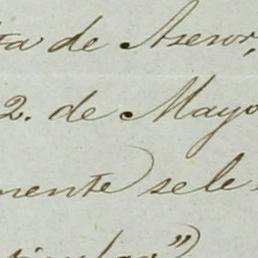 ta de Asesor,
2. de Mayo
mente) se le